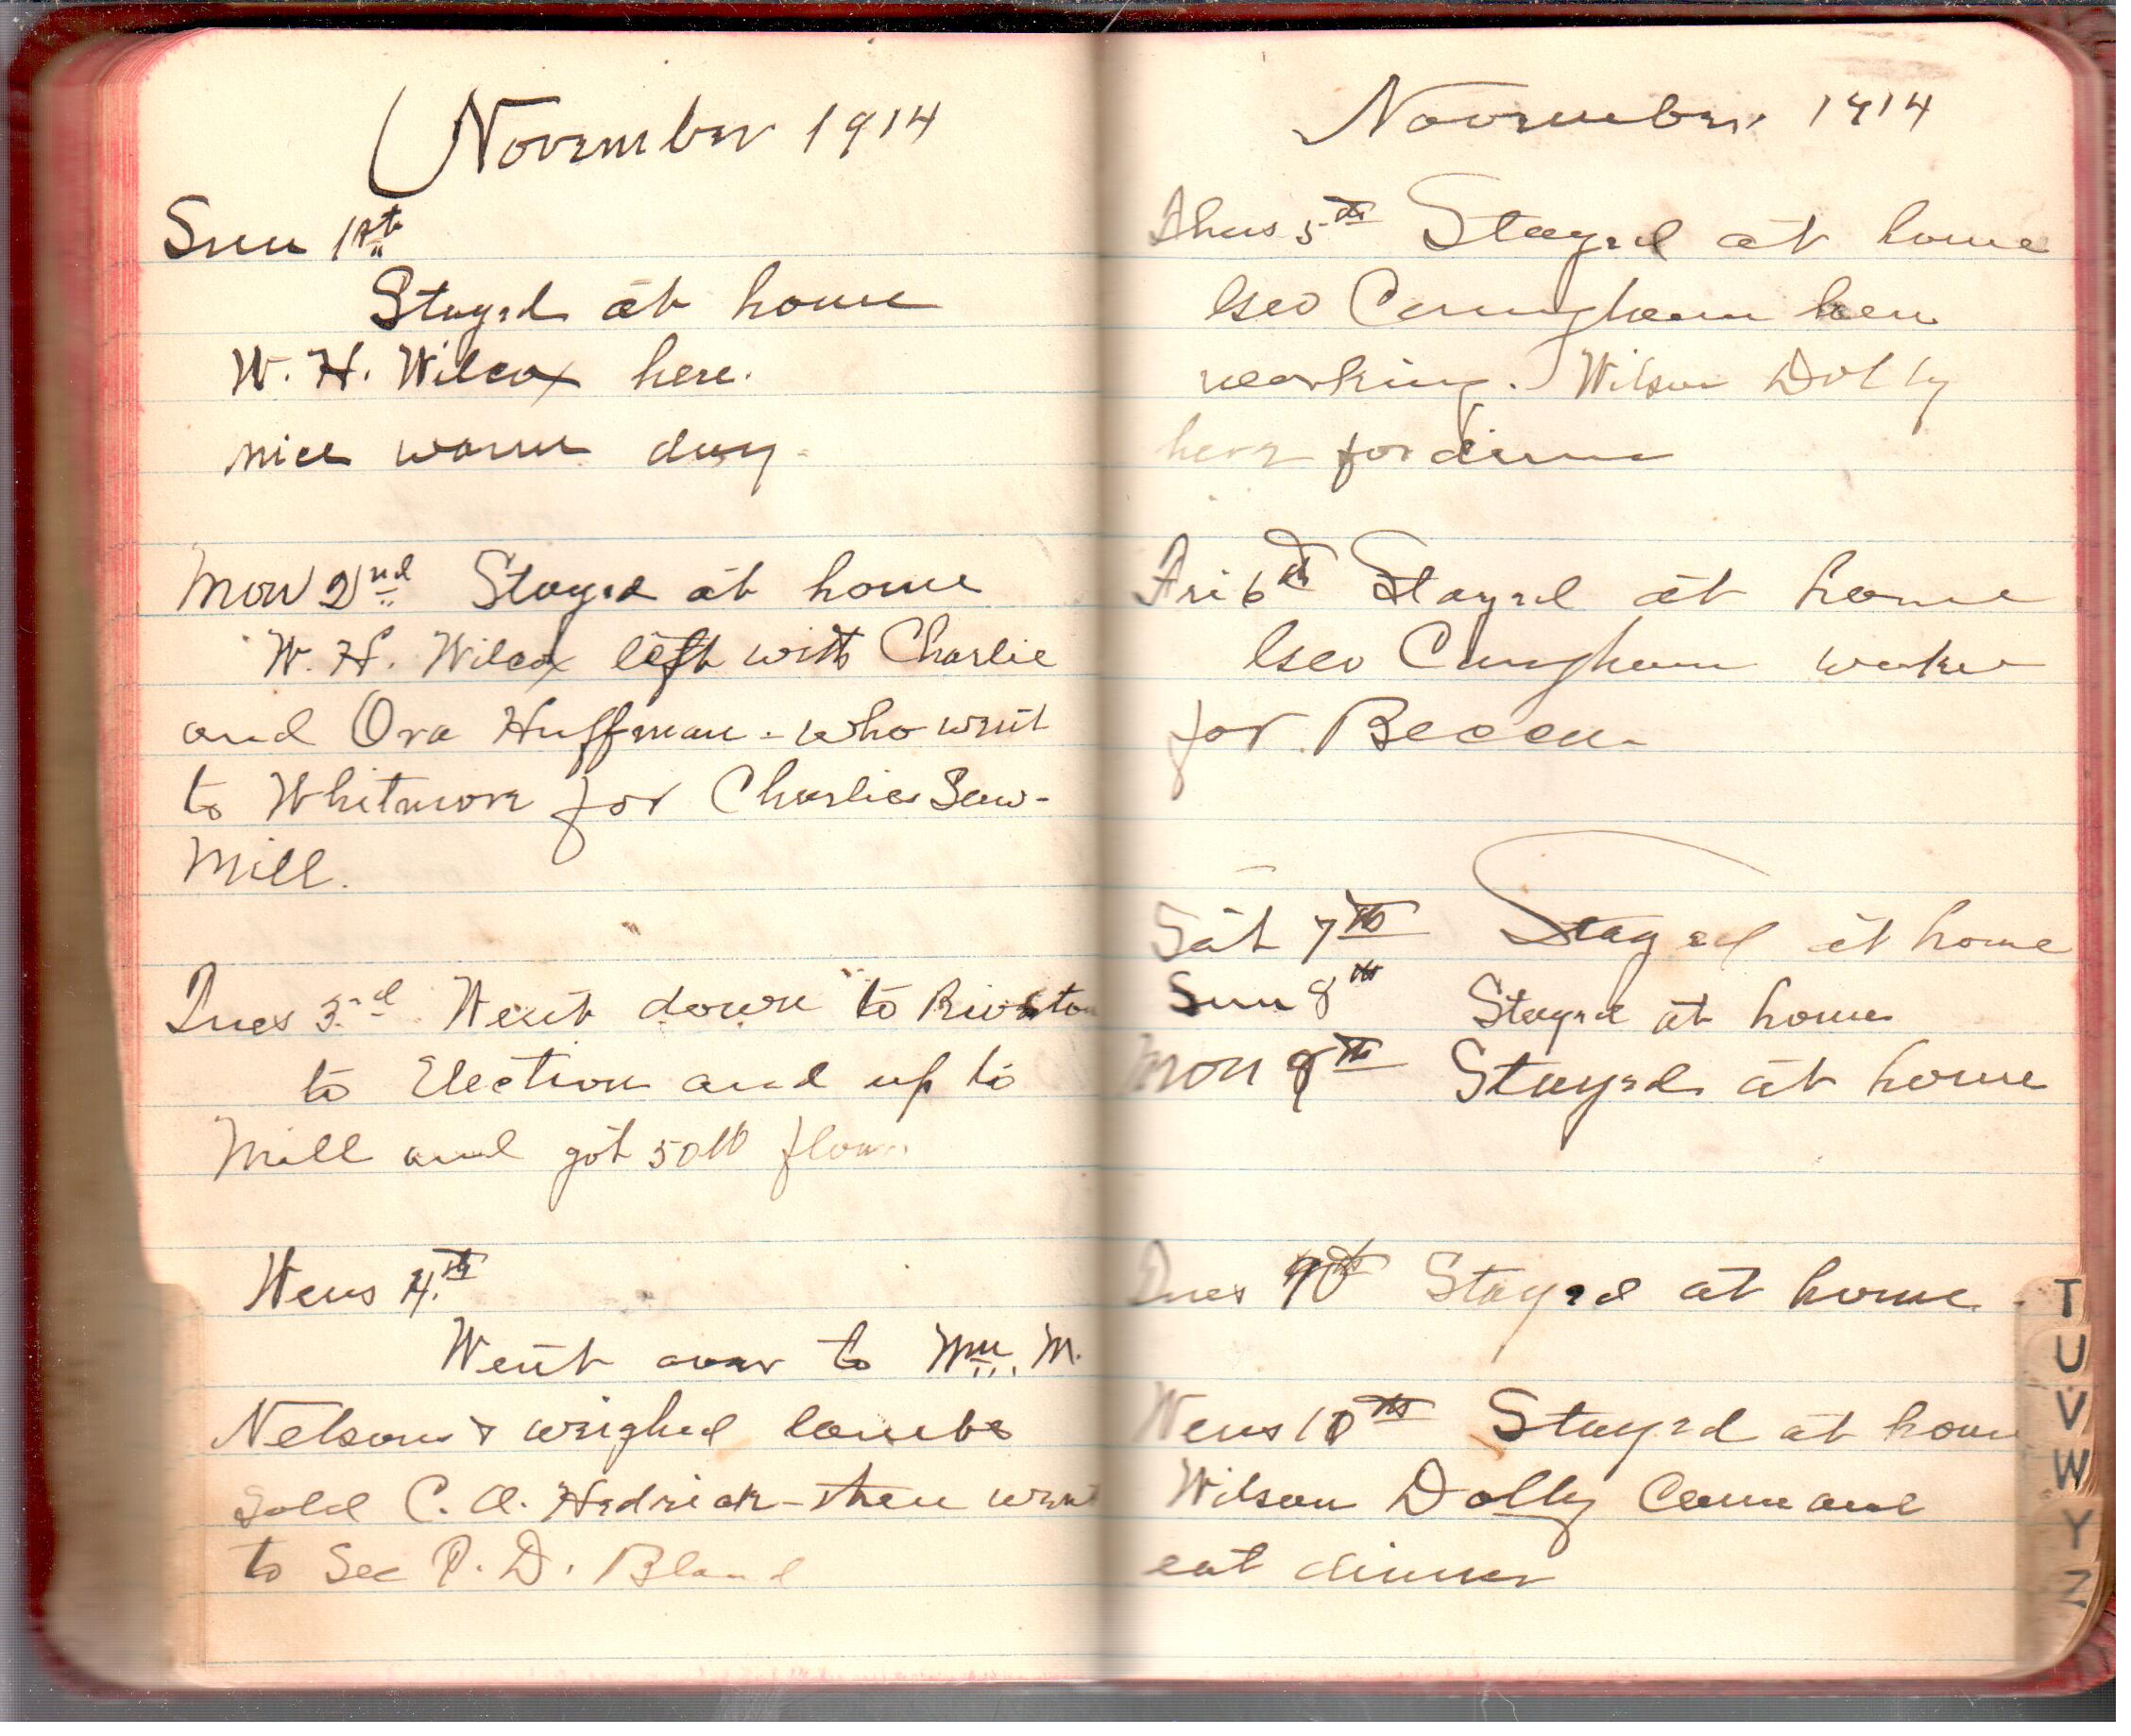 November 1914
Sun 1st
Stayed at home
W. H. Wilcox here.
nice warm day.
Mon 2nd Stayed at home
W. H. Wilcox left with Charlie
and Ora Huffman - who went
to Whitmore for Charlies Saw-
Mill.
Tues 3rd Went down to Riverton
to Election and up to
Mill and got 50 lb flour
Wens 4th
Went over to Wm. M.
Nelsons & weighed lambs
Sold C. A. Hedrick - then went
to See P. D. Bland
November 1914
Thus 5th Stayed at home
Geo Cuningham here
working. Wilson Dolly
here for dinner
Fri 6th Stayed at home
Geo Cungham worked
for
Sat 7th Stayed at home
Sun 8th Stayed at home
Mon 9th Stayed at home
Tues Stayed at home
Wens 10th Stayed at home
Wilson Dolly Came and
eat dinner
T
U
V
W
Y
Z